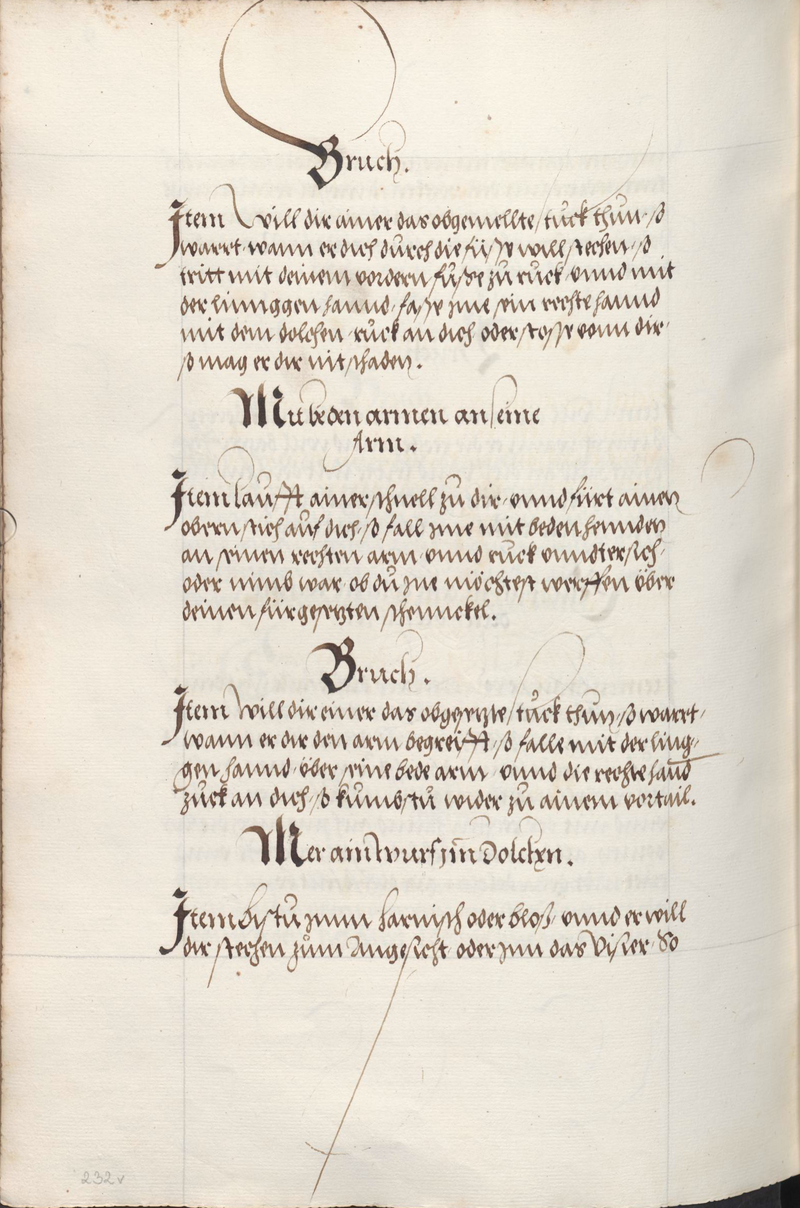 Bruch.
Item Will dir ainer das obgemellte stuck thun, so
warrt wann er dich durch die füsse will stechen, so
tritt mit deinem vordern fusse zu ruck vnnd mit
der linnggen hannd, fasse jme sein rechte hannd
mit dem dolchen, ruck an dich oder stosse vonn dir,
so mag er dir nit schaden.
Mit beden armen an seine
Arm.
Item laufft ainer schnell zu dir, vnnd fürt ainen
obern stich auf dich, so fall jme mit beden henndenn
an seinen rechten arm vnnd ruck vnndtersich,
oder nimb war ob du jne möchtest werffen über
deinen fürgesetzten schennckel.
Bruch.
Item Will dir einer das obgesetzte stuck thun, so warrt,
wann er dir den arm begreifft, so falle mit der ling,
gen hannd, über seine bede arm vnnd die rechte hannd
zuck an dich, so kumbstu wider zu ainem vortail.
Mer ain wurf jm Dolchen.
Item bistu jnnn harnisch oder bloß, vnnd er will
dir stechen zum Angesicht oder jnn das visier, So
232v